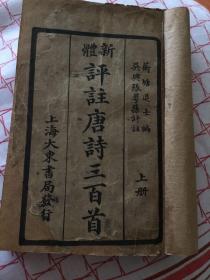 新體
評註唐詩三百首
蘅塘退士編
吳興張萼蓀評註
上册
上海大東書局發行